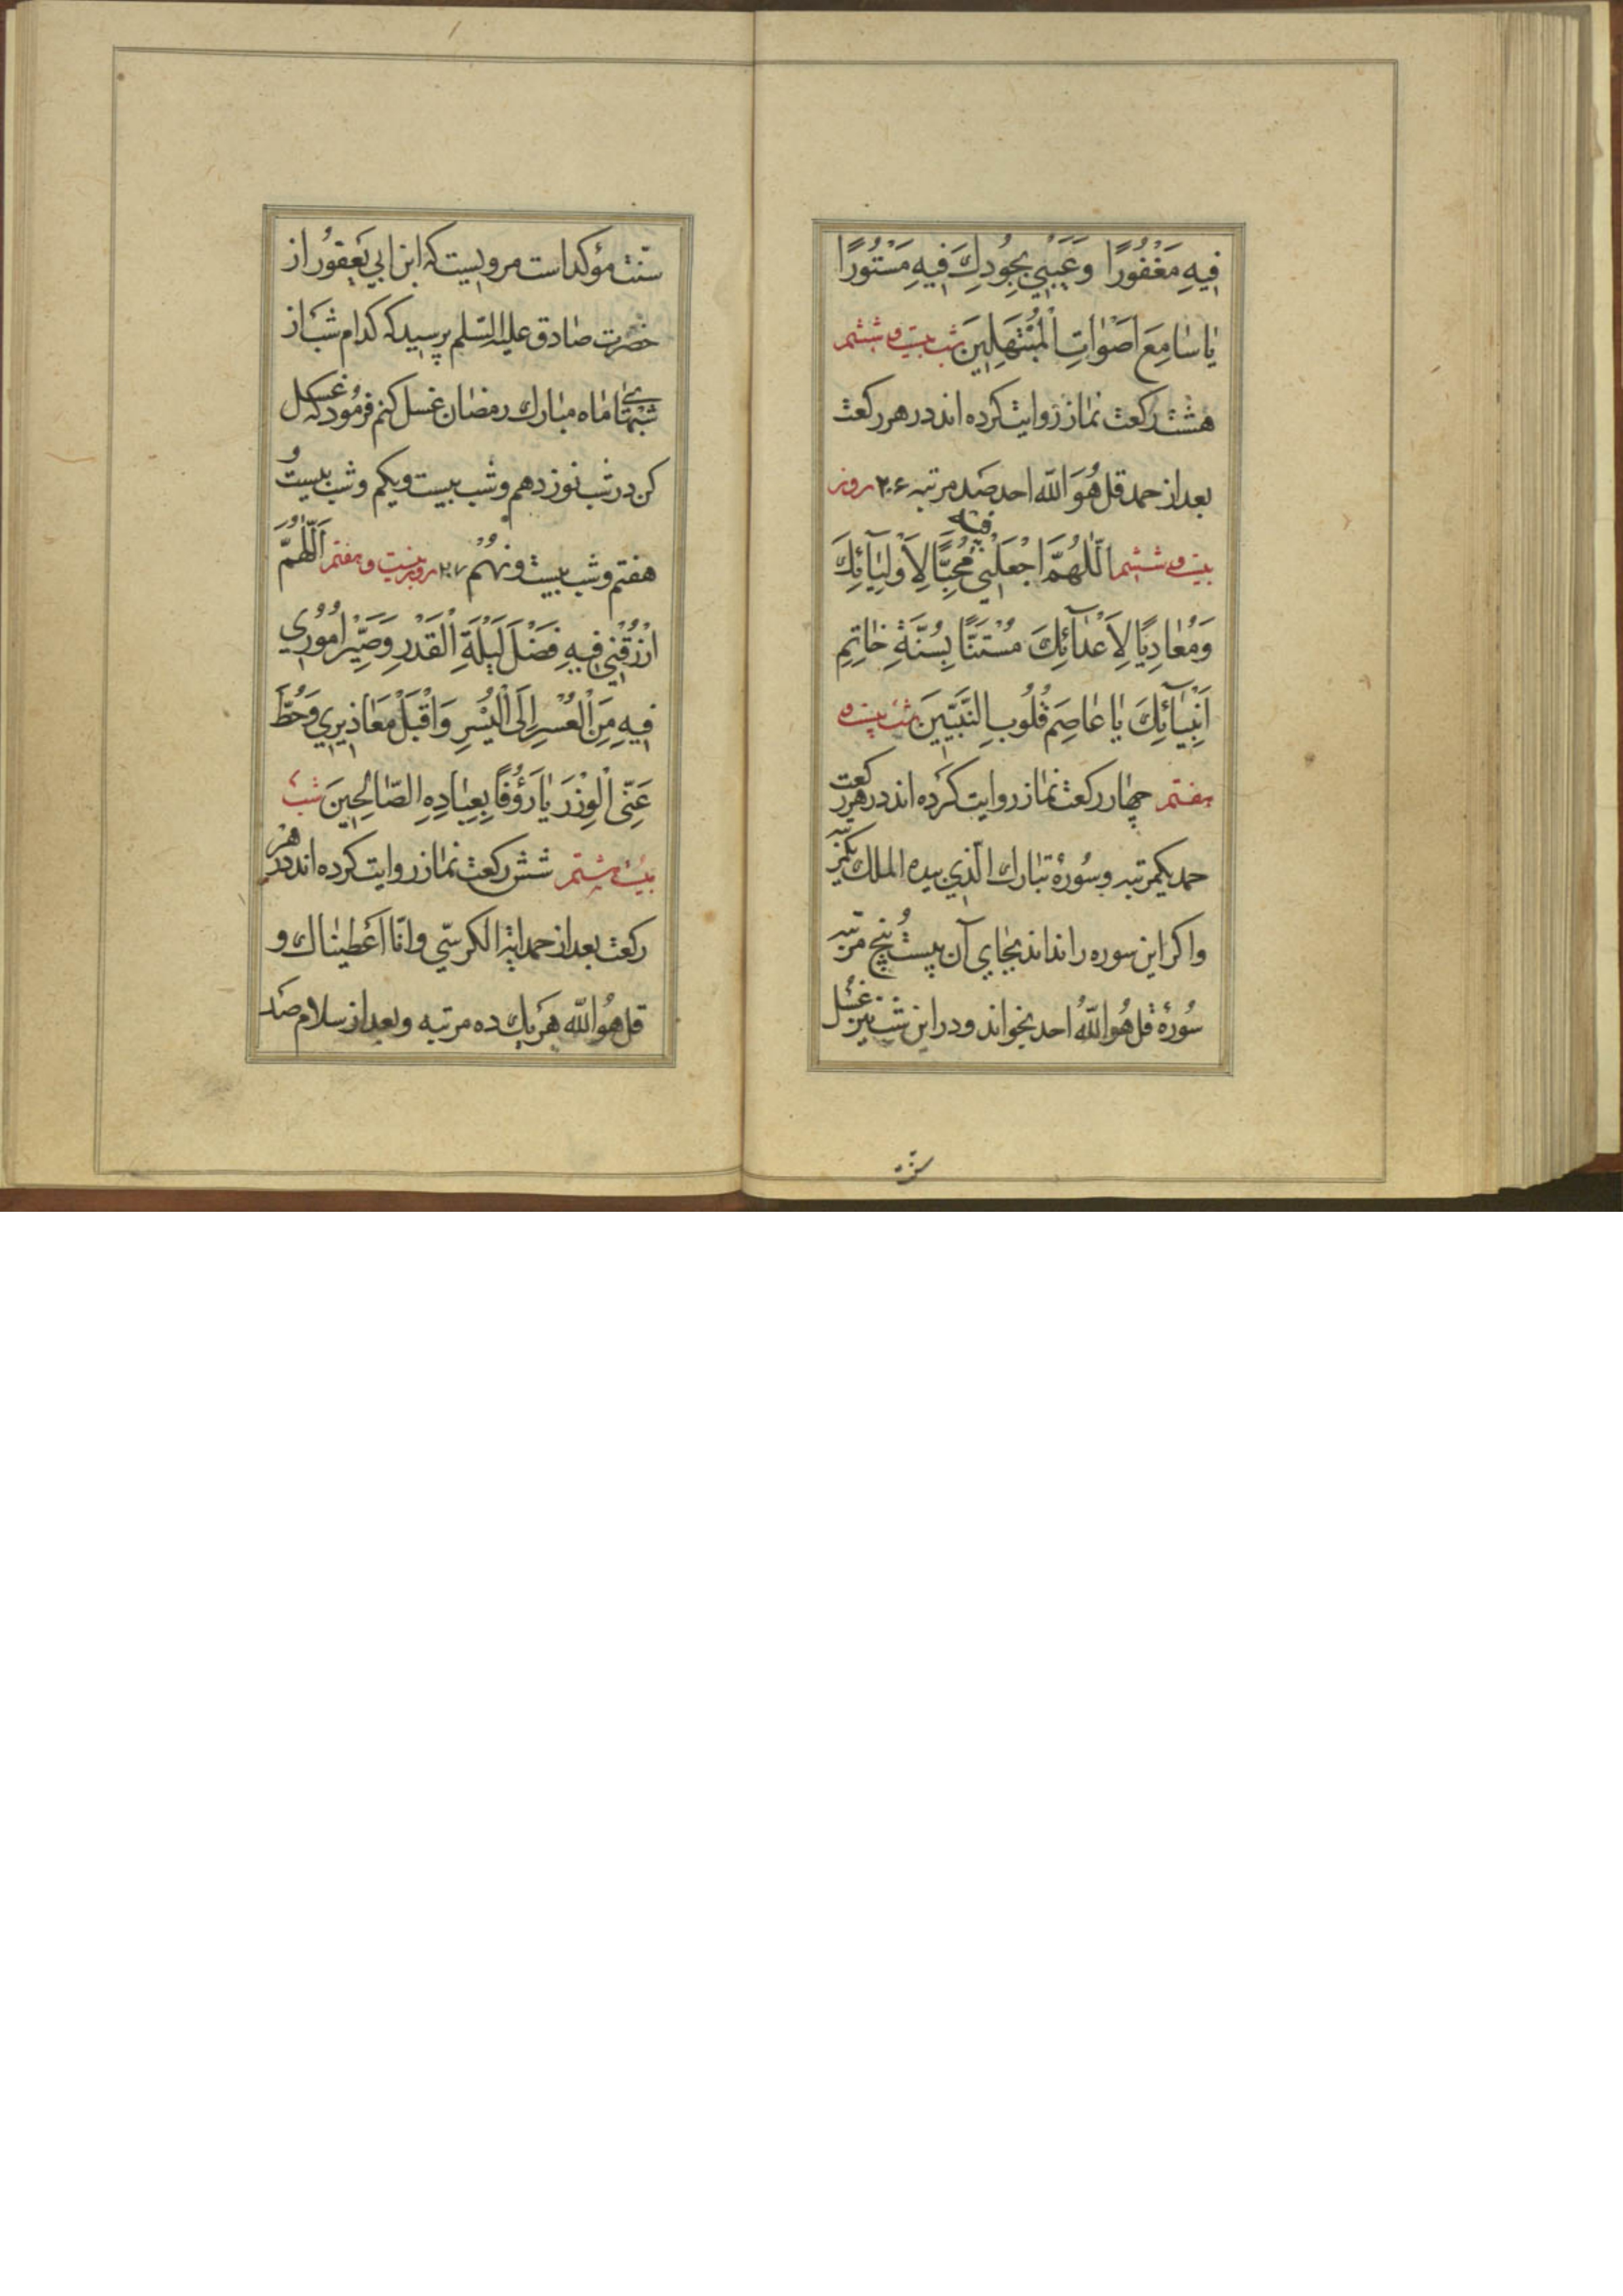 فِيهِ مَغْفُورًا وَعَيْبِي بِجُودِكَ فِيهِ مَسْتُورًا
يا سامِعَ اَصْواتِ الْمُبْتَهِلِينَ شب بیست و ششم
هشت رکعت نماز روایت کرده اند در هر رکعت
بعد از حمد قل هُوَ الله احد صد مرتبه ۲۰۶ روز
بیست و ششم اللّٰهُمَّ اجْعَلْنِي فيه مُحِبًّا لِاَوْلِيٰآئِكَ
وَمُعادِيًا لِاَعْدآئِكَ مُسْتَنًّا بِسُنَّةِ خاتِمِ
اَنْبِيٰآئِكَ يا عاصِمَ قُلُوبِ النَّبِيِّينَ شب بیست و
هفتم چهار رکعت نماز روایت کرده اند در هر رکعت
حمد یکمرتبه و سُورهٔ تبارك الّذي بيده الملك یکمرتبه
واکر این سوره را نداند بجای آن بیست و پنج مرتبه
سُورهٔ قل هُوَ اللهُ احد بخواند و در این شب نیز غسل
سنّت مؤکد است مرویست که ابن ابي يَعفور از
حضرت صادق علیه السّلم پرسید که کدام شب از
شبهای ماه مبارك رمضان غسل کنم فرمود که غسل
کن در شب نوزدهم و شب بیست و یکم و شب بیست و
هفتم و شب بیست و نهم ۲۰۷ روز بیست و هفتم اَللّٰهُمَّ
ارْزُقْنِي فِيهِ فَضْلَ لَيْلَةِ الْقَدْرِ وَصَيِّرْ اُمُورِي
فِيهِ مِنَ الْعُسْرِ اِلَى الْيُسْرِ وَاقْبَلْ مَعاذِيرِي وَحُطَّ
عَنِّى الْوِزْرَ يا رَؤُفًا بِعِبادِهِ الصّالِحِينَ شب
بیست و هشتم شش رکعت نماز روایت کرده اند در هر
رکعت بعد از حمد ایة الکرسّي و انّا اَعطیناك و
قل هُوَ الله هر یك ده مرتبه و بعد از سلام صد